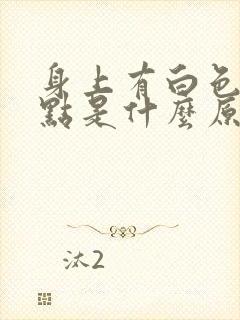 身上有白色
點是什麼原
汰2